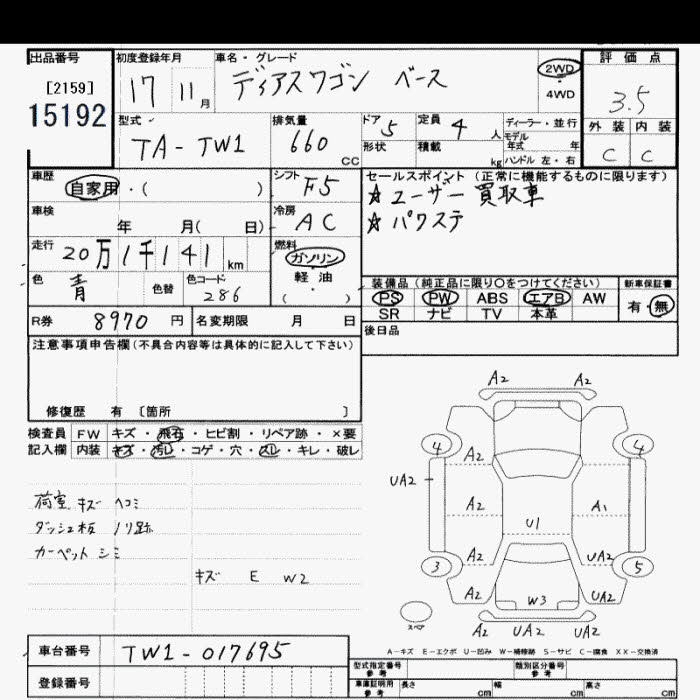 出品番号
[2159]
15192
初度登録年月
17 11月
車名・グレード
ディアスワゴン ベース
2WD
4WD
評価点
3.5
外装 内装
C C
型式
TA-TW1
排気量
660
CC
ドア 5
形状
定員 4 人
積載 kg
ディーラー・並行
モデル
年式 年
ハンドル 左・右
車歴
自家用・( )
シフト F5
車検
年 月( 日)
冷房
AC
走行
20万1千141 km
燃料
ガソリン
軽・油
( )
色
青
色替
色コード
286
R券 8970 円
名変期限 月 日
セールスポイント (正常に機能するものに限ります)
☆ユーザー買取車
☆パワステ
装備品(純正品に限り○をつけてください)
PS PW ABS エアB AW
SR ナビ TV 本革
新車保証書
有・無
後日品
注意事項申告欄(不具合内容等は具体的に記入して下さい)
修復歴 有 [箇所 ]
検査員
記入欄
FW キズ・飛石・ヒビ割・リペア跡・×要
内装 キズ・汚レ・コゲ・穴・スレ・キレ・破レ
荷室 キズ ヘコミ
ダッシュ板 ノリ跡
カーペット シミ
キズ E W2
A2 A2
4 4
A2
UA2
A2 A1
U1
A2 UA2
3 5
A2 W3 UA2
スペア
A2 UA2 UA2
A-キズ E-エクボ U-凹み W-補修跡 S-サビ C-腐食 XX-交換済
車台番号
TW1-017695
登録番号
型式指定番号
参考
類別区分番号
参考
車庫証明用
参考
長さ cm
幅 cm
高さ cm